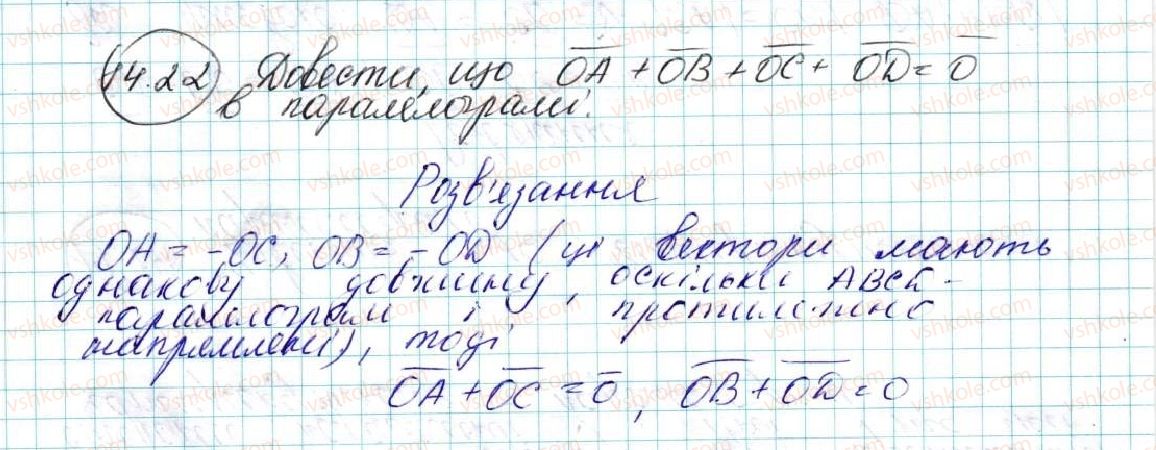 14.22 Довести, що OA + OB + OC + OD = 0
в паралелограмі.
Розв'язання
OA = -OC, OB = -OD (ці вектори мають
однакову довжину, оскільки ABCD -
паралелограм і протилежно
напрямлені), тоді
OA + OC = 0, OB + OD = 0